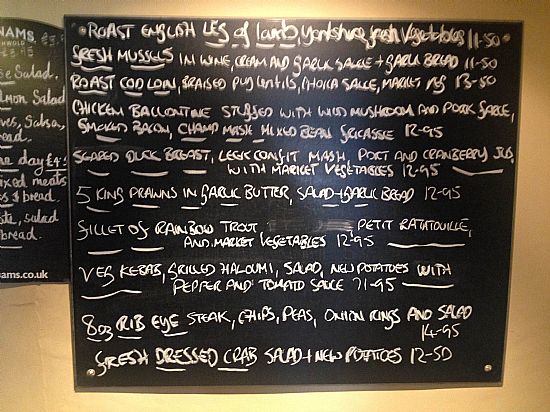 ROAST ENGLISH LEG of Lamb, yorkshire, fresh Vegetables 11-50
FRESH MUSSELS IN WINE, CREAM AND GARLIC SAUCE + GARLIC BREAD 11-50
ROAST COD LOIN, BRAISED PUY LENTILS, SAUCE, MARKET VEG 13-50
CHICKEN BALLONTINE STUFFED WITH WILD MUSHROOM AND PORK
SMOKED BACON, CHAMP MASH MIXED BEAN FRICASSE 12-95
SEARED DUCK BREAST, LEEK CONFIT MASH, PORT AND CRANBERRY JUS,
WITH MARKET VEGETABLES 12-95
5 KING PRAWNS IN GARLIC BUTTER, SALAD + GARLIC BREAD 12-95
FILLET OF RAINBOW TROUT, PETIT RATATOUILLE,
AND MARKET VEGETABLES 12-95
VEG KEBAB, GRILLED HALOUMI, SALAD, NEW POTATOES WITH
PEPPER AND TOMATO SAUCE 11-95
8oz RIB EYE STEAK, CHIPS, PEAS, ONION RINGS AND SALAD
14-95
FRESH DRESSED CRAB SALAD + NEW POTATOES 12-50
NAMS
Salad.
Salad
bread.
day £4
mixed meats
bread.
salad
bread.
ams.co.uk